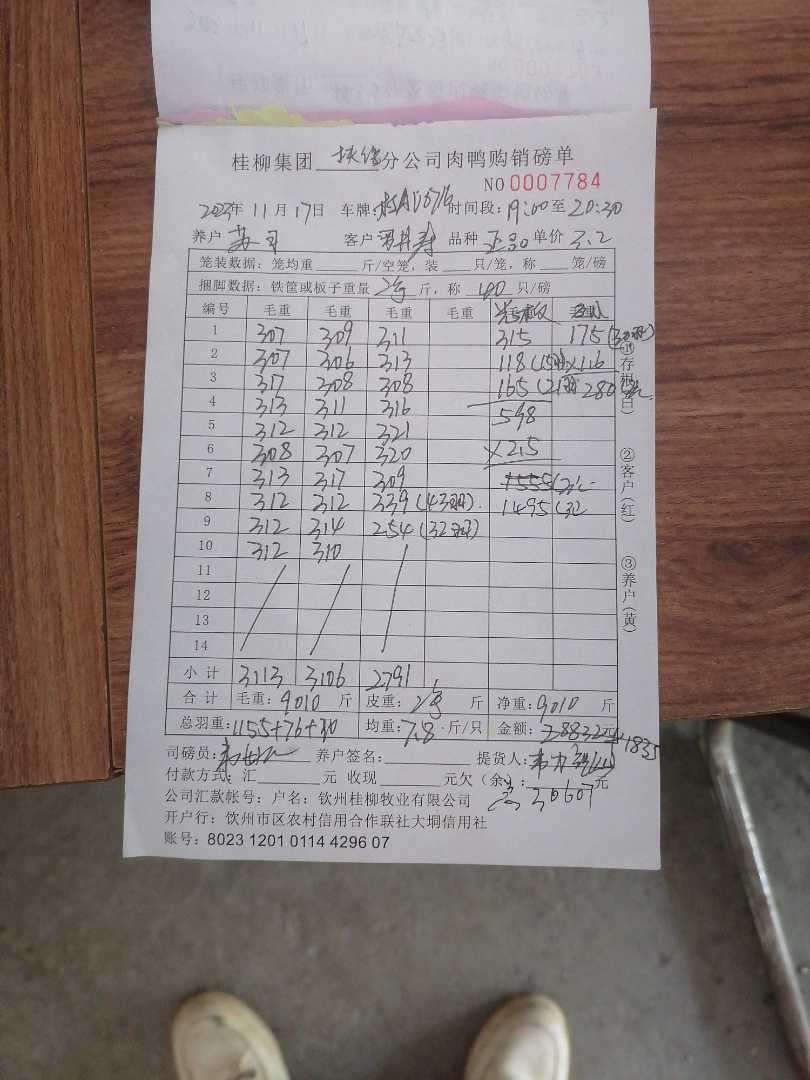 桂柳集团 扶绥 分公司肉鸭购销磅单
NO 0007784
2023年 11月 17日 车牌: 时间段: 19:00至20:30
养户 苏 客户 品种 正品 单价 3.2
笼装数据: 笼均重 斤/空笼, 装 只/笼, 称 笼/磅
捆脚数据: 铁筐或板子重量 斤, 称 40 只/磅
编号 毛重 毛重 毛重 毛重
1 307 309 311 315 175
2 307 306 313 118 ×1.6
3 317 308 308 165 280元
4 313 311 316 598
5 312 312 321
6 308 307 320 ×2.5
7 313 317 309
8 312 312 339 (43羽) 1495元
9 312 314 254 (32羽)
10 312 310
11
12
13
14
小计 3113 3106 2791
合计 毛重: 9010 斤 皮重: 斤 净重: 9010 斤
总羽重: 1155+76+30 均重: 7.8 斤/只 金额: 28832元+1835
司磅员: 养户签名: 提货人:
付款方式: 汇 元 收现 元欠(余): 元
30607
公司汇款帐号: 户名: 钦州桂柳牧业有限公司
开户行: 钦州市区农村信用合作联社大垌信用社
账号: 8023 1201 0114 4296 07
①存根(白)
②客户(红)
③养户(黄)